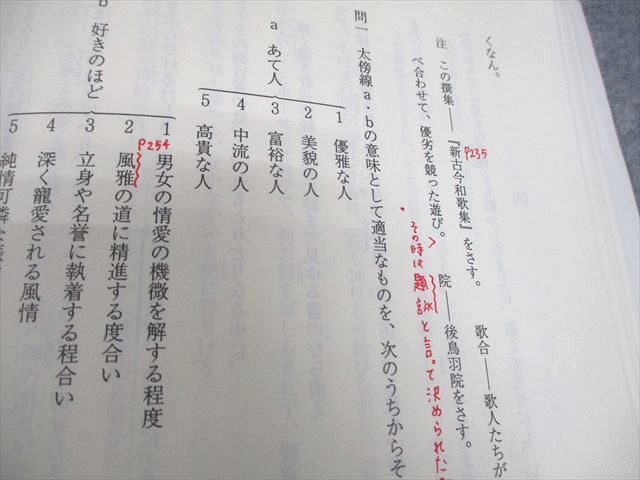 くなん。
注 この撰集――『新古今和歌集』をさす。 歌合――歌人たちが
P235
べ合わせて、優劣を競った遊び。 院――後鳥羽院をさす。
その時は題詠と言って決められた
問一 太傍線a・bの意味として適当なものを、次のうちからそ
a あて人
1 優雅な人
2 美貌の人
3 富裕な人
4 中流の人
5 高貴な人
b 好きのほど
1 男女の情愛の機微を解する程度
P254
2 風雅の道に精進する度合い
3 立身や名誉に執着する程合い
4 深く寵愛される風情
5 純情可憐な